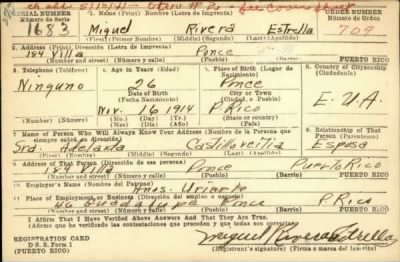 SERIAL NUMBER
Número de Serie
1. Name (Print) Nombre (Letra de Imprenta)
ORDER NUMBER
Número de Orden
1683
Miguel Rivera Estrella
709
(First) (Primer Nombre) (Middle) (Segundo) (Last) (Apellido)
2. Address (Print) Dirección (Letra de Imprenta)
184 Villa Ponce
PUERTO RICO
(Number and street) (Número y calle) (City or town) (Ciudad o Pueblo)
3. Telephone (Teléfono)
4. Age in Years (Edad)
5. Place of Birth (Lugar de Nacimiento)
6. Country of Citizenship (Ciudadanía)
Ninguno
26
Ponce
E. U. A.
Date of Birth
(Fecha Nacimiento)
City or Town
(Ciudad, o Pueblo)
Nov. 16 1914
P. Rico
(Mo.) (Day) (Yr.)
(Mes) (Día) (Año)
(State or country)
7. Name of Person Who Will Always Know Your Address (Nombre de la Persona que siempre sabrá su dirección)
8. Relationship of That Person (Parentesco)
Srd. Adelaida Castilloveitia
Esposa
(First) (Primer Nombre) (Middle) (Segundo) (Last) (Apellido)
9. Address of That Person (Dirección de esa persona)
184 Villa Ponce Puerto Rico
(Number and street) (Número y calle) (City or town) (Ciudad o Pueblo)
10. Employer's Name (Nombre del Patrono)
Hnos. Uriarte
11. Place of Employment or Business (Dirección del empleo o negocio)
46 Guadalupe Ponce P. Rico
(Number and street) (Número y calle) (City or town) (Ciudad o Pueblo)
I Affirm That I Have Verified Above Answers And That They Are True.
(Afirmo que he verificado las contestaciones que preceden y que todas son correctas)
REGISTRATION CARD
D. S. S. Form 1
(PUERTO RICO)
Miguel Rivera Estrella
(Registrant's signature) (Firma o marca del inscrito)